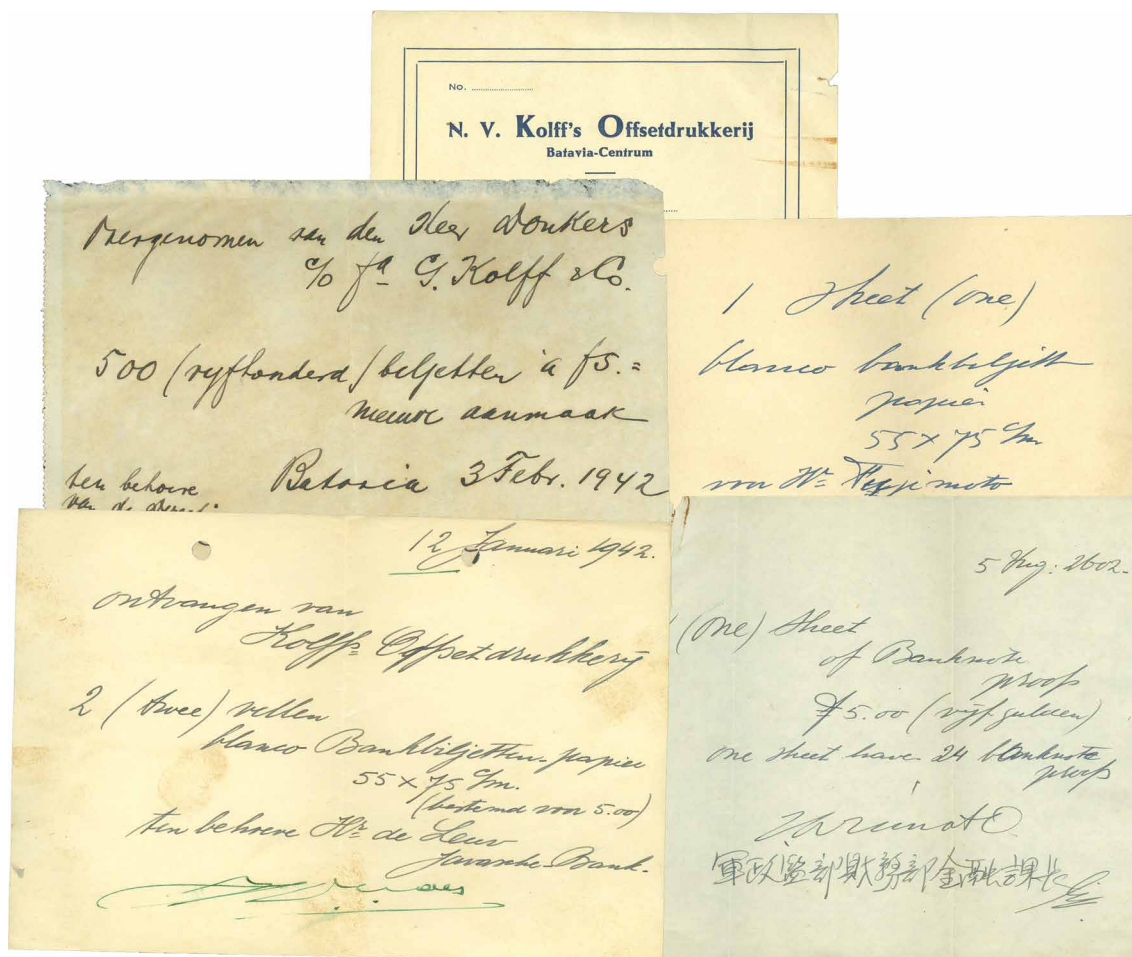 No.
N. V. Kolff's Offsetdrukkerij
Batavia-Centrum
Overgenomen van den Heer Donkers
c/o fa G. Kolff & Co.
500 (vyfhonderd) biljetten à f5.=
nieuwe aanmaak
Batavia 3 Febr. 1942
ten behoeve
van de
1 Sheet (one)
blanco bankbiljett
papier
55 x 75 c/m.
voor Hr. Fujimoto
12 Januari 1942.
ontvangen van
Kolff's Offsetdrukkerij
2 (twee) vellen
blanco Bankbiljetten-papier
55 x 75 c/m.
(bestemd voor 5.00)
ten behoeve Hr. de Leur
Javasche Bank.
5 Aug: 2602.
(One) Sheet
of Banknote
proof
f 5.00 (vijf gulden)
one sheet have 24 banknote
proof
軍政監部財務部金融課長